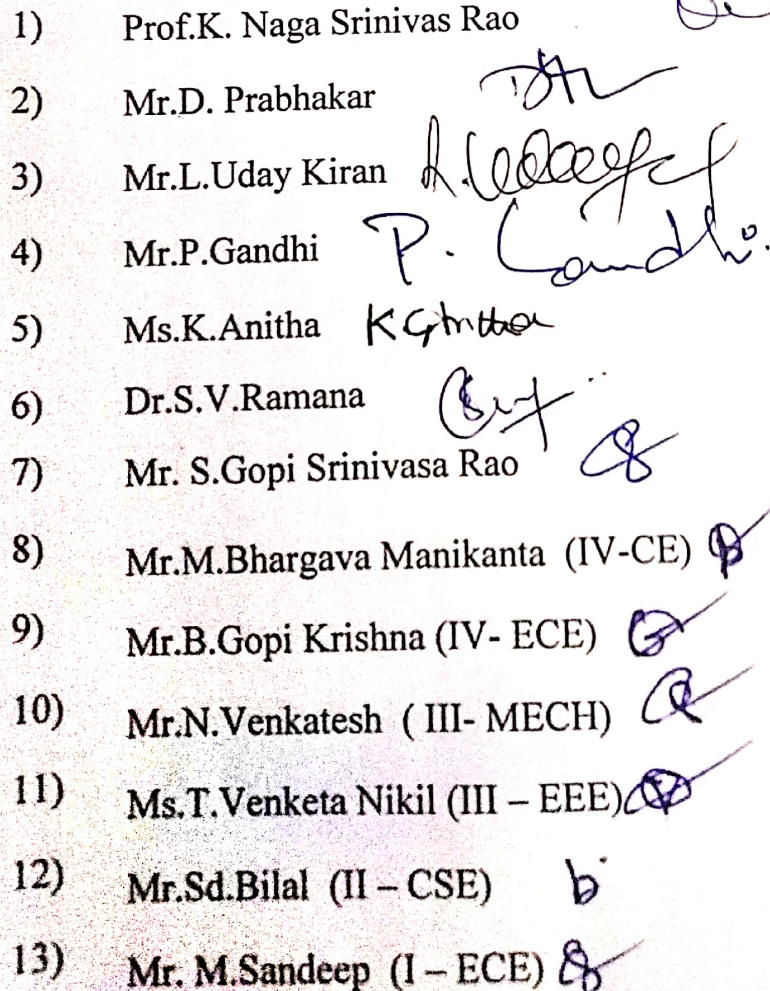 1) Prof.K. Naga Srinivas Rao
2) Mr.D. Prabhakar
3) Mr.L.Uday Kiran
4) Mr.P.Gandhi P. Gandhi.
5) Ms.K.Anitha
6) Dr.S.V.Ramana
7) Mr. S.Gopi Srinivasa Rao
8) Mr.M.Bhargava Manikanta (IV-CE)
9) Mr.B.Gopi Krishna (IV- ECE)
10) Mr.N.Venkatesh ( III- MECH)
11) Ms.T.Venketa Nikil (III – EEE)
12) Mr.Sd.Bilal (II – CSE) b
13) Mr. M.Sandeep (I – ECE)